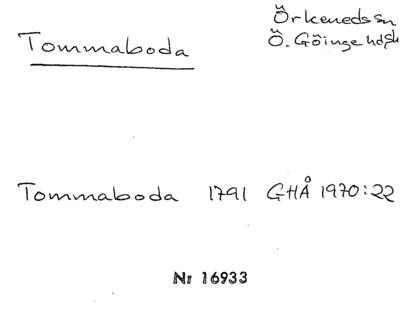 Tommaboda
Örkeneds sn
Ö. Göinge hd
Tommaboda 1791 GHÅ 1970:22
Nr 16933